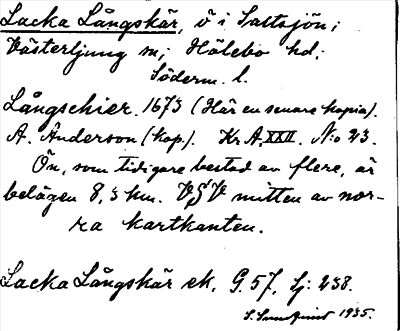 Lacka Långskär, ö i Saltsjön;
Västerljung sn; Hölebo hd;
Söderm. l.
Långschier. 1673 (Här en senare kopia).
A. Anderson (kop.). Kr.A. XXII. N:o 23.
Ön, som tidigare bestod av flere, är
belägen 8,3 km. VSV mitten av nor-
ra kartkanten.
Lacka Långskär ek. G. 57, Sj: 238.
S. Sundqvist 1935.